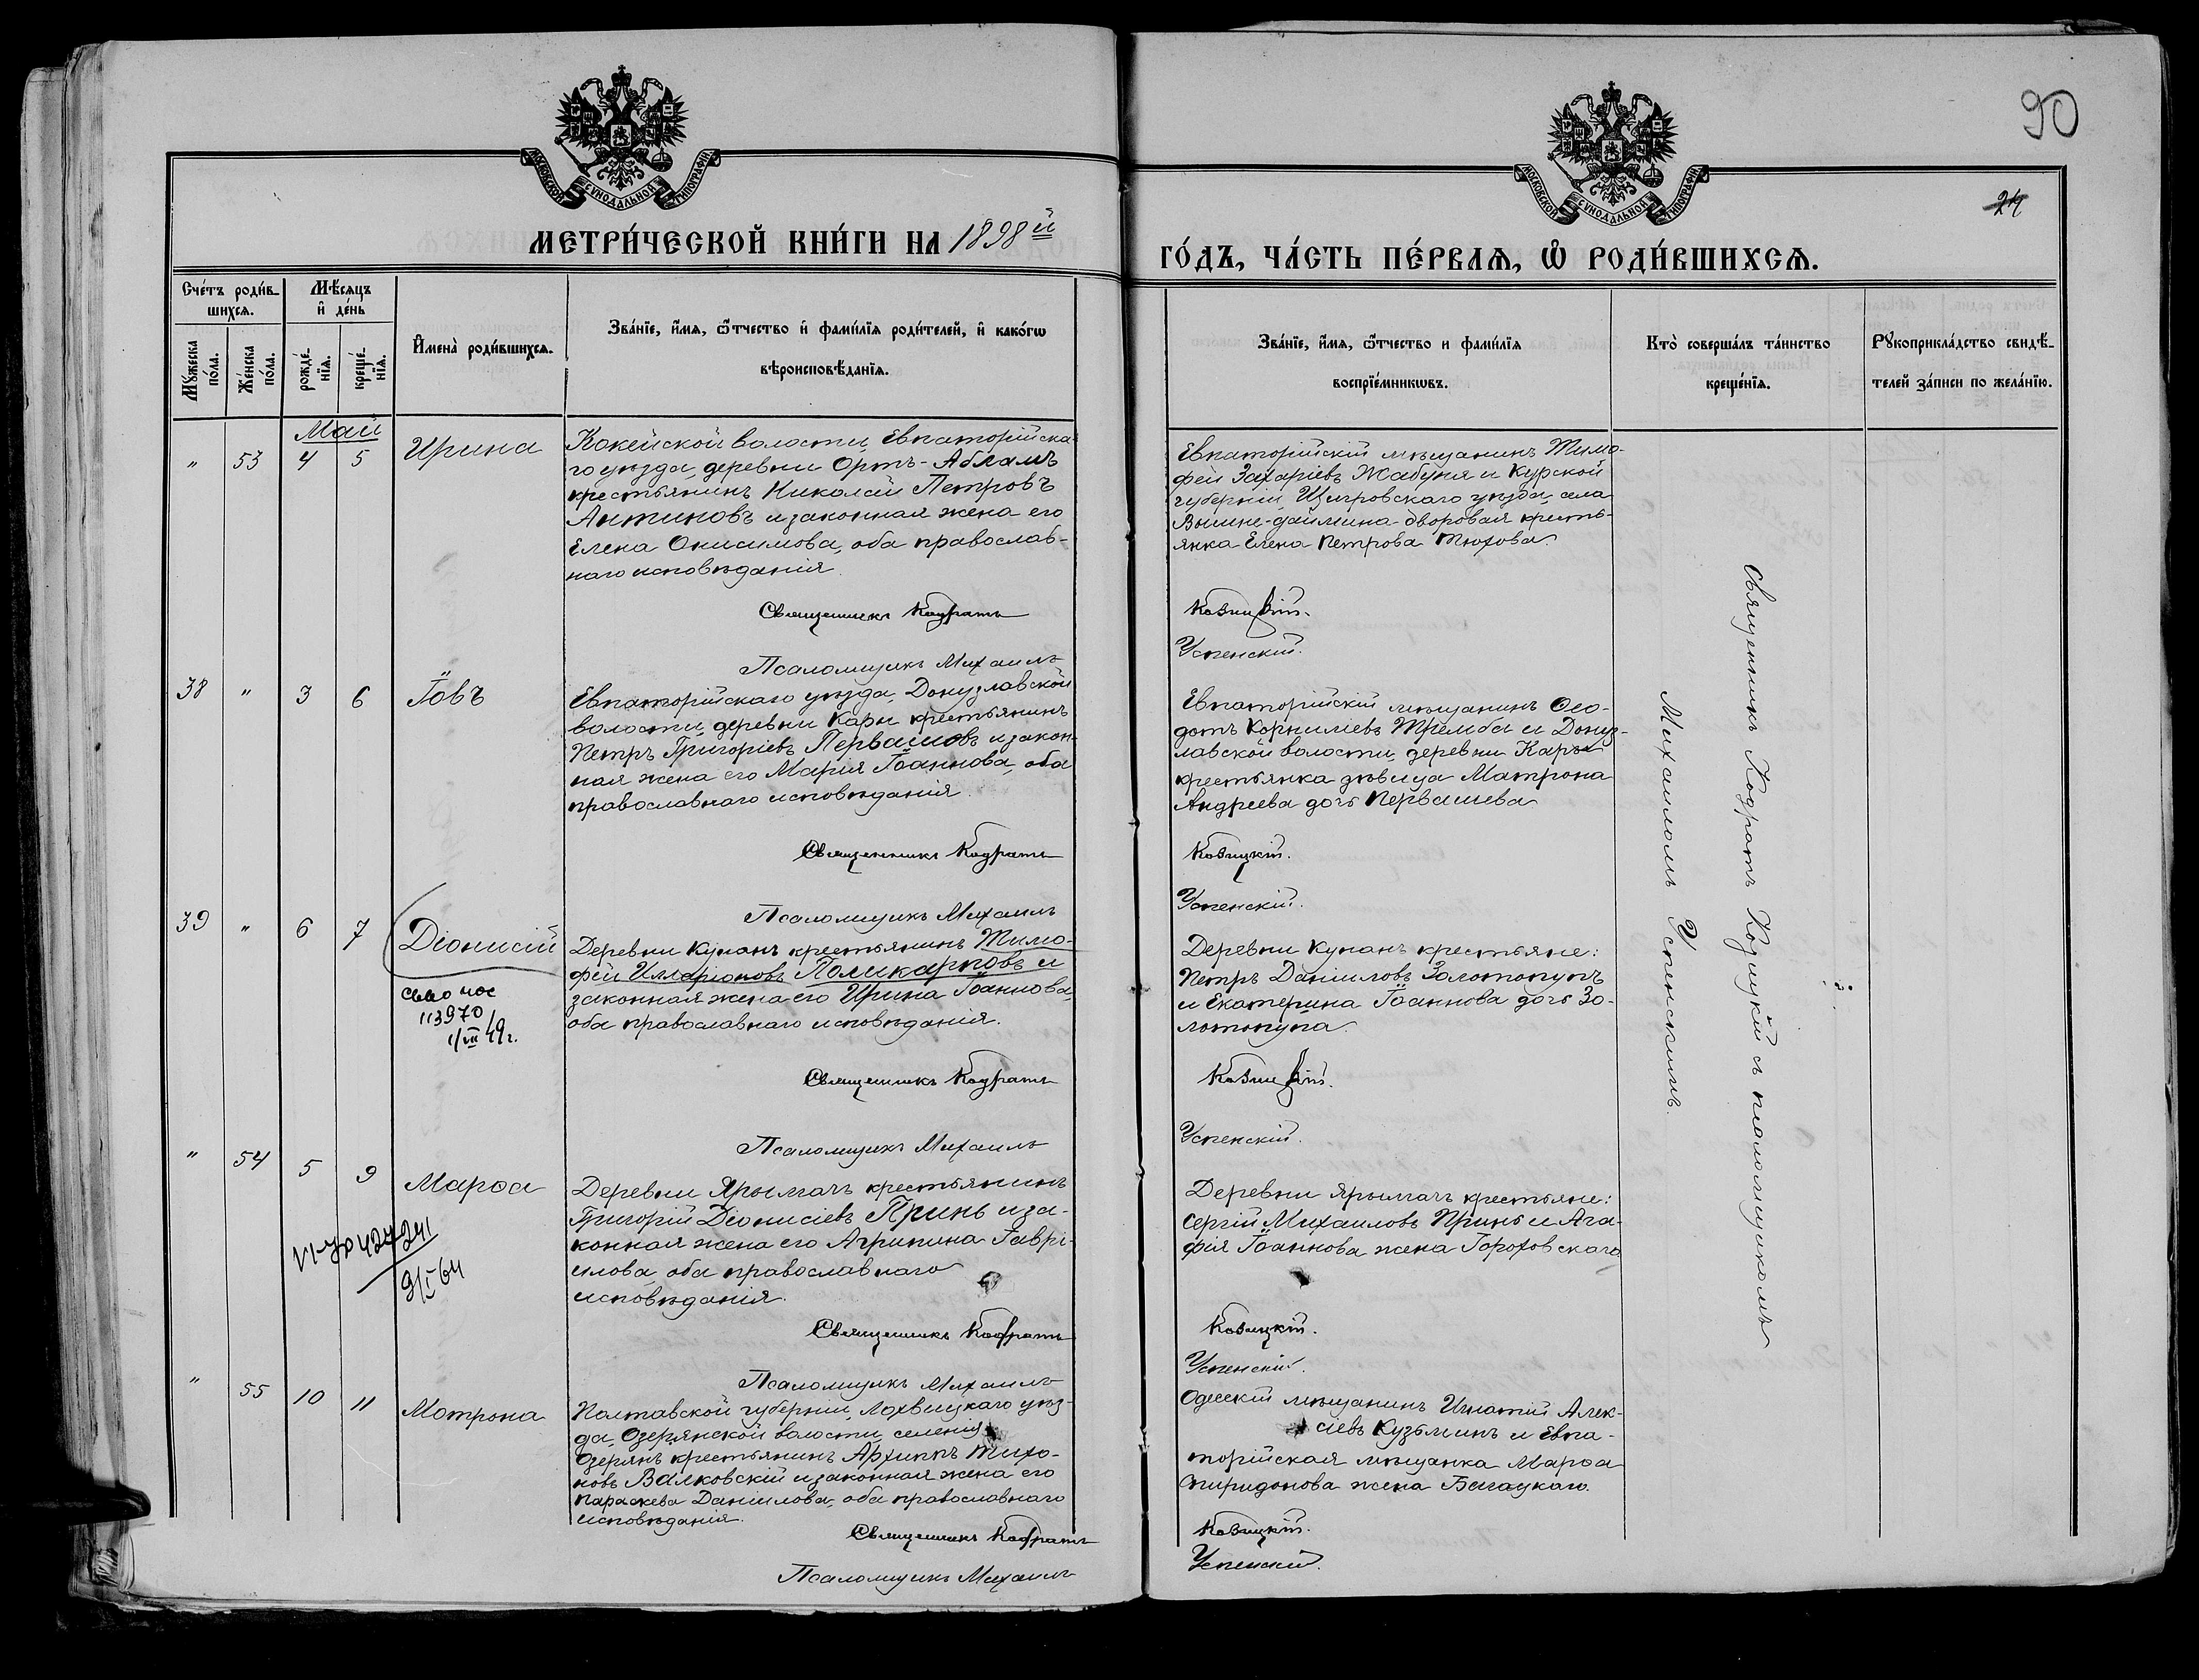 90
24
МОСКОВСКОЙ СѴНОДАЛЬНОЙ ТИПОГРАФІИ
МОСКОВСКОЙ СѴНОДАЛЬНОЙ ТИПОГРАФІИ
МЕТРИ́ЧЕСКОЙ КНИ́ГИ НА 1898й
ГО́ДЪ, ЧА́СТЬ ПЕ́РВАѦ, Ѡ҆ РОДИ́ВШИХСѦ.
Сче́тъ роди́в-
шихсѧ.
Мꙋ́жеска по́ла.
Же́нска по́ла.
Мѣ́сѧцъ
и҆ де́нь
рожде́-
нїѧ.
креще́-
нїѧ.
И҆мена̀ роди́вшихсѧ.
Зва́нїе, и҆́мѧ, ѻ҆́тчество и҆ фами́лїѧ роди́телей, и҆ како́гѡ
вѣроисповѣ́данїѧ.
Зва́нїе, и҆́мѧ, ѻ҆́тчество и фами́лїѧ
воспрїе́мникѡвъ.
Кто̀ соверша́лъ та́инство
креще́нїѧ.
Рꙋкоприкла́дство свидѣ́-
телей за́писи по жела́нїю.
Май
" 53 4 5 Ирина
Кокейской волости, Евпаторійска-
го уѣзда, деревни Ортъ-Абламъ
крестьянинъ Николай Петровъ
Антиповъ и законная жена его
Елена Онисимова, оба православ-
наго исповѣданія.
Священникъ Кодратъ
Псаломщикъ Михаилъ
Евпаторійскій мѣщанинъ Тимо-
фей Захаріевъ Жабуня и Курской
губерніи, Щигровскаго уѣзда, села
дворовая кресть-
янка Елена Петрова Тюхова.
Козицкій.
Успенскій.
38 " 3 6 Іовъ
Евпаторійскаго уѣзда, Донузлавской
волости, деревни Кари крестьянинъ
Петръ Григоріевъ Первашовъ и закон-
ная жена его Марія Іоаннова, оба
православнаго исповѣданія.
Священникъ Кодратъ
Псаломщикъ Михаилъ
Евпаторійскій мѣщанинъ Ѳео-
дотъ Корниліевъ Трембa и Донуз-
лавской волости, деревни Кари
крестьянка дѣвица Матрона
Андреева дочь Первашева
Козицкій.
Успенскій.
39 " 6 7 Діонисій
113970
1/VII 49г.
Деревни Купанъ крестьянинъ Тимо-
фей Илларіоновъ Поликарповъ и
законная жена его Ирина Іоаннова,
оба православнаго исповѣданія.
Священникъ Кодратъ
Псаломщикъ Михаилъ
Деревни Купанъ крестьяне:
Петръ Даніиловъ Золотопупъ
и Екатерина Іоаннова дочь Зо-
лотопупа.
Козицкій.
Успенскій.
" 54 5 9 Марѳа
9/I 64
Деревни Ярылгачъ крестьянинъ
Григорій Діонисіевъ Принь и за-
конная жена его Агрипина Гаврі-
илова, оба православнаго
исповѣданія.
Священникъ Кодратъ
Псаломщикъ Михаилъ
Деревни Ярылгачъ крестьяне:
Сергій Михаиловъ Принь и Ага-
фія Іоаннова жена Гороховскаго
Козицкій.
Успенскій.
" 55 10 11 Мотрона
Полтавской губерніи, Лохвицкаго уѣз-
да, Озерянской волости, селенія
Озерянъ крестьянинъ Архиппъ Тихо-
новъ Валковскій и законная жена его
Параскева Даніилова, оба православнаго
исповѣданія.
Священникъ Кодратъ
Псаломщикъ Михаилъ
Одесскій мѣщанинъ Игнатій Алек-
сіевъ Кузьминъ и Евпа-
торійская мѣщанка Марѳа
Спиридонова жена Багацкаго.
Козицкій.
Успенскій.
Священникъ Кодратъ Козицкій съ псаломщикомъ
Михаиломъ Успенскимъ.